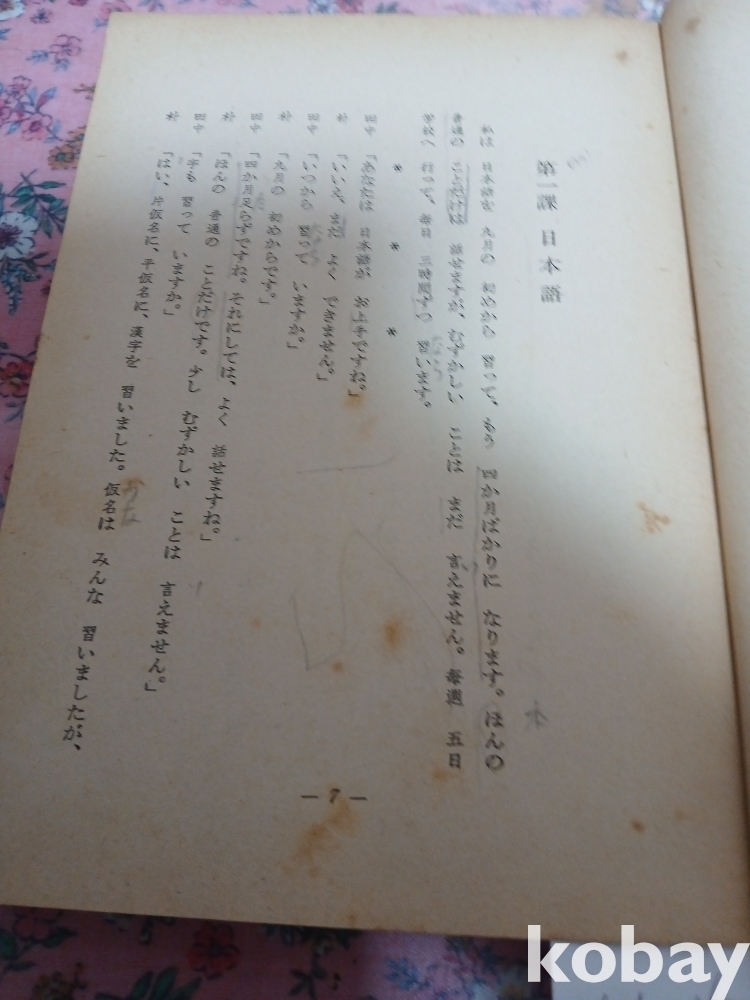 第一課 日本語
私は 日本語を 九月の 初めから 習って、もう 四か月ばかりに なります。ほんの
普通の ことだけは 話せますが、むずかしい ことは まだ 言えません。毎週 五日
学校へ 行って、毎日 三時間ずつ 習います。
* * *
田中 「あなたは 日本語が お上手ですね。」
朴 「いいえ、まだ よく できません。」
田中 「いつから 習って いますか。」
朴 「九月の 初めからです。」
田中 「四か月足らずですね。それにしては、よく 話せますね。」
朴 「ほんの 普通の ことだけです。少し むずかしい ことは 言えません。」
田中 「字も 習って いますか。」
朴 「はい、片仮名に、平仮名に、漢字を 習いました。仮名は みんな 習いましたが、
— 7 —
kobay